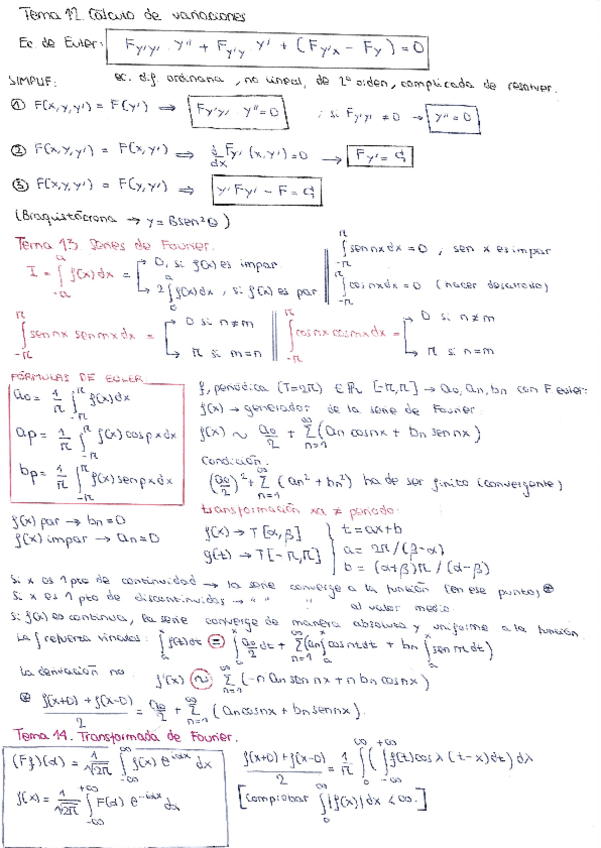 Tema 12. Cálculo de variaciones
Ec. de Euler: Fy'y' y'' + Fy'y y' + (Fy'x - Fy) = 0
SIMPLIF: ec. dif. ordinaria, no lineal, de 2º orden, complicada de resolver.
① F(x,y,y') = F(y') ⇒ Fy'y' y'' = 0 ; si Fy'y' ≠ 0 → y'' = 0
② F(x,y,y') = F(x,y') ⇒ d/dx Fy' (x,y') = 0 → Fy' = C1
③ F(x,y,y') = F(y,y') ⇒ y' Fy' - F = C1
(Braquistócrona → y = B sen² θ)
Tema 13. Series de Fourier.
I = ∫_{-a}^{a} f(x) dx = 0, si f(x) es impar
2∫_0^a f(x) dx, si f(x) es par
∫_{-π}^{π} sen nx dx = 0, sen x es impar
∫_{-π}^{π} cos nx dx = 0 (hacer desarrollo)
∫_{-π}^{π} sen nx sen mx dx = 0 si n≠m
π si m=n
∫_{-π}^{π} cos nx cos mx dx = 0 si n≠m
π si n=m
FÓRMULAS DE EULER
a0 = 1/π ∫_{-π}^{π} f(x) dx
ap = 1/π ∫_{-π}^{π} f(x) cos px dx
bp = 1/π ∫_{-π}^{π} f(x) sen px dx
f, periódica (T=2π) ∈ R [-π,π] → a0, an, bn con F euler:
f(x) → generador de la serie de Fourier
f(x) ~ a0/2 + Σ_{n=1}^{∞} (an cos nx + bn sen nx)
Condición.
(a0/2)² + Σ_{n=1}^{∞} (an² + bn²) ha de ser finito (convergente)
f(x) par → bn = 0
f(x) impar → an = 0
transformación xa ≠ periodo:
f(x) → T[α,β]
g(t) → T[-π,π]
t = ax+b
a = 2π/(β-α)
b = (α+β)π/(α-β)
Si x es 1 pto de continuidad → la serie converge a la función (en ese punto) ⊛
Si x es 1 pto de discontinuidad → " " " al valor medio.
Si f(x) es continua, la serie converge de manera absoluta y uniforme a la función.
La ∫ refuerza vínculos: ∫_a^x f(t) dt = ∫_a^x a0/2 dt + Σ_{n=1}^{∞} (an ∫_a^x cos nt dt + bn ∫_a^x sen nt dt)
la derivación no f'(x) ~ Σ_{n=1}^{∞} (-n an sen nx + n bn cos nx)
⊛ f(x+0) + f(x-0) / 2 = a0/2 + Σ_{n=1}^{∞} (an cos nx + bn sen nx).
Tema 14. Transformada de Fourier.
(Ff)(α) = 1/√2π ∫_{-∞}^{∞} f(x) e^{iαx} dx
f(x) = 1/√2π ∫_{-∞}^{+∞} F(α) e^{-iαx} dx
f(x+0) + f(x-0) / 2 = 1/π ∫_0^∞ (∫_{-∞}^{+∞} f(t) cos λ (t-x) dt) dλ
[comprobar ∫_0^∞ |f(x)| dx < ∞.]